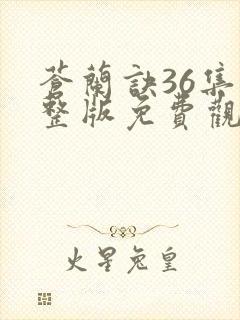 蒼蘭訣36集
整版免費觀
火星兔皇